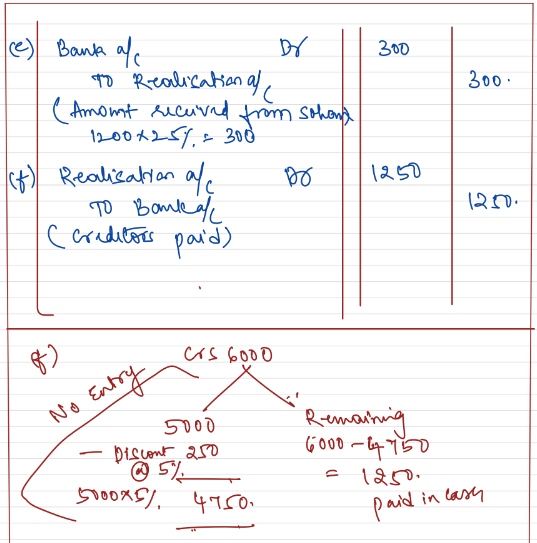 (e) Bank a/c Dr 300
To Realisation a/c 300.
(Amount received from sohan)
1200 x 25% = 300
(f) Realisation a/c Dr 1250
To Bank a/c 1250.
(Creditors paid)
f) Crs 6000
No Entry
5000
- Discont 250
@ 5%
5000x5% 4750.
Remaining
6000 - 4750
= 1250.
paid in cash